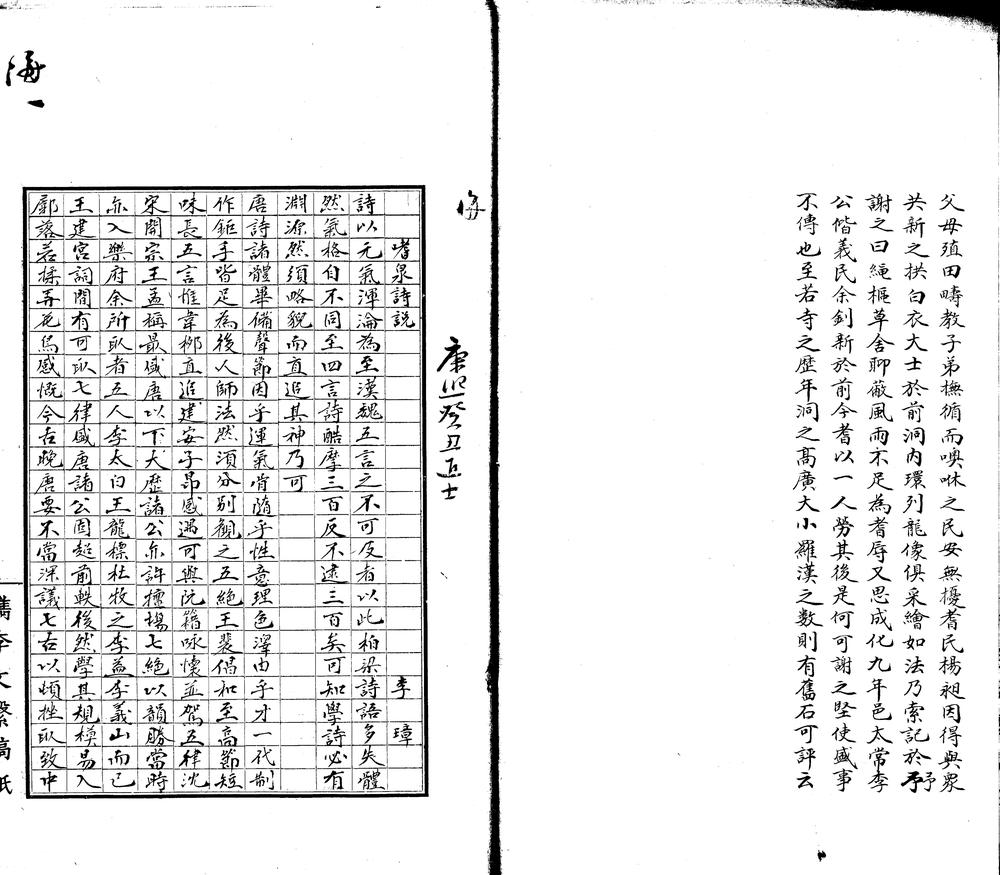 父母殖田疇教子弟撫循而噢咻之民安無擾耆民楊昶因得與衆
共新之拱白衣大士於前洞內環列龍像俱采繪如法乃索記於予
謝之曰繩樞草舍聊蔽風雨不足為耆辱又思成化九年邑太常李
公偕義民余釗新於前今耆以一人勞其後是何可謝之堅使盛事
不傳也至若寺之歷年洞之高廣大小羅漢之數則有舊石可評云
海
康熙癸丑進士
嗜泉詩説 李璋
詩以元氣渾淪為至漢魏五言之不可及者以此柏梁詩語多失體
然氣格自不同至四言詩酷摩三百反不逮三百矣可知學詩必有
淵源然須略貌而直追其神乃可
唐詩諸體畢備聲節因乎運氣骨隨乎性意理色澤由乎才一代制
作鉅手皆足為後人師法然須分別觀之五絕王裴倡和至高節短
味長五言惟韋柳直追建安子昂感遇可與阮籍咏懷並駕五律沈
宋間宗王孟稱最盛唐以下大歷諸公亦許擅場七絕以韻勝當時
亦入樂府余所取者五人李太白王龍標杜牧之李益李義山而已
王建宮詞間有可取七律盛唐諸公固超前軼後然學其規模易入
廓落若揉弄花鳥感慨今古晚唐要不當深議七古以頓挫取致中
海一
檇李文繫稿紙